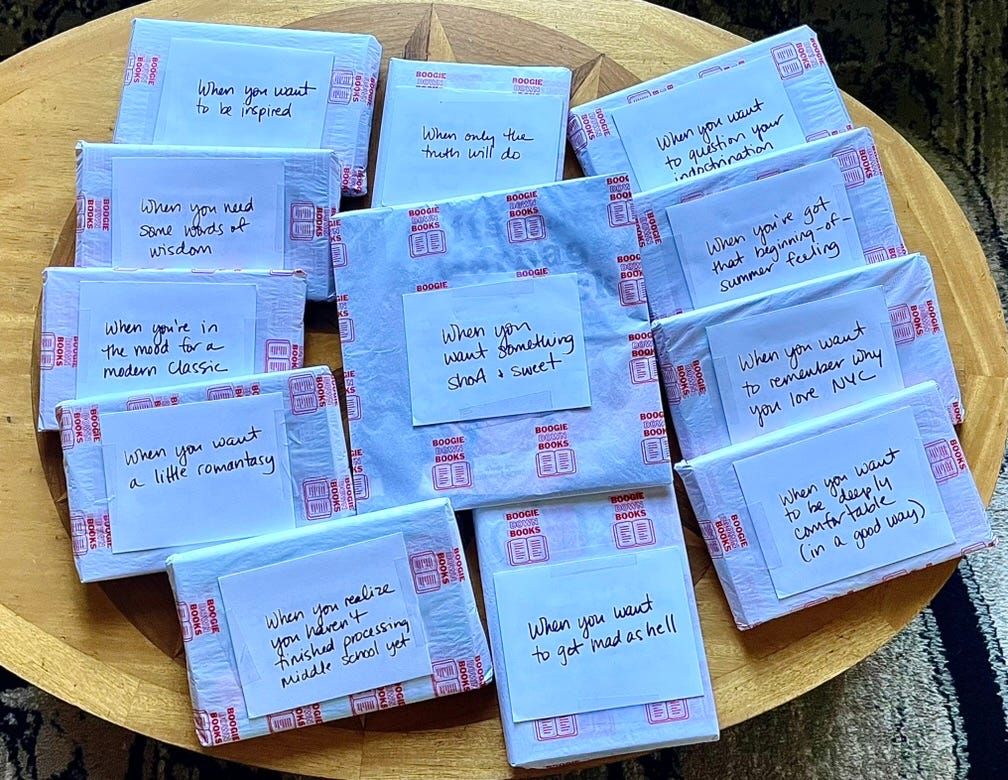 When you want
to be inspired
When only the
truth will do
When you want
to question your
indoctrination
When you need
some words of
wisdom
When you've got
that beginning-of-
summer feeling
When you're in
the mood for a
modern classic
When you
want something
short & sweet
When you want
to remember why
you love NYC
When you want
a little romantasy
When you want
to be deeply
comfortable
(in a good way)
When you realize
you haven't
finished processing
middle school yet
When you want
to get mad as hell
BOOGIE
DOWN
BOOKS
BOOGIE
DOWN
BOOKS
BOOGIE
DOWN
BOOKS
BOOGIE
DOWN
BOOKS
BOOGIE
DOWN
BOOKS
BOOGIE
DOWN
BOOKS